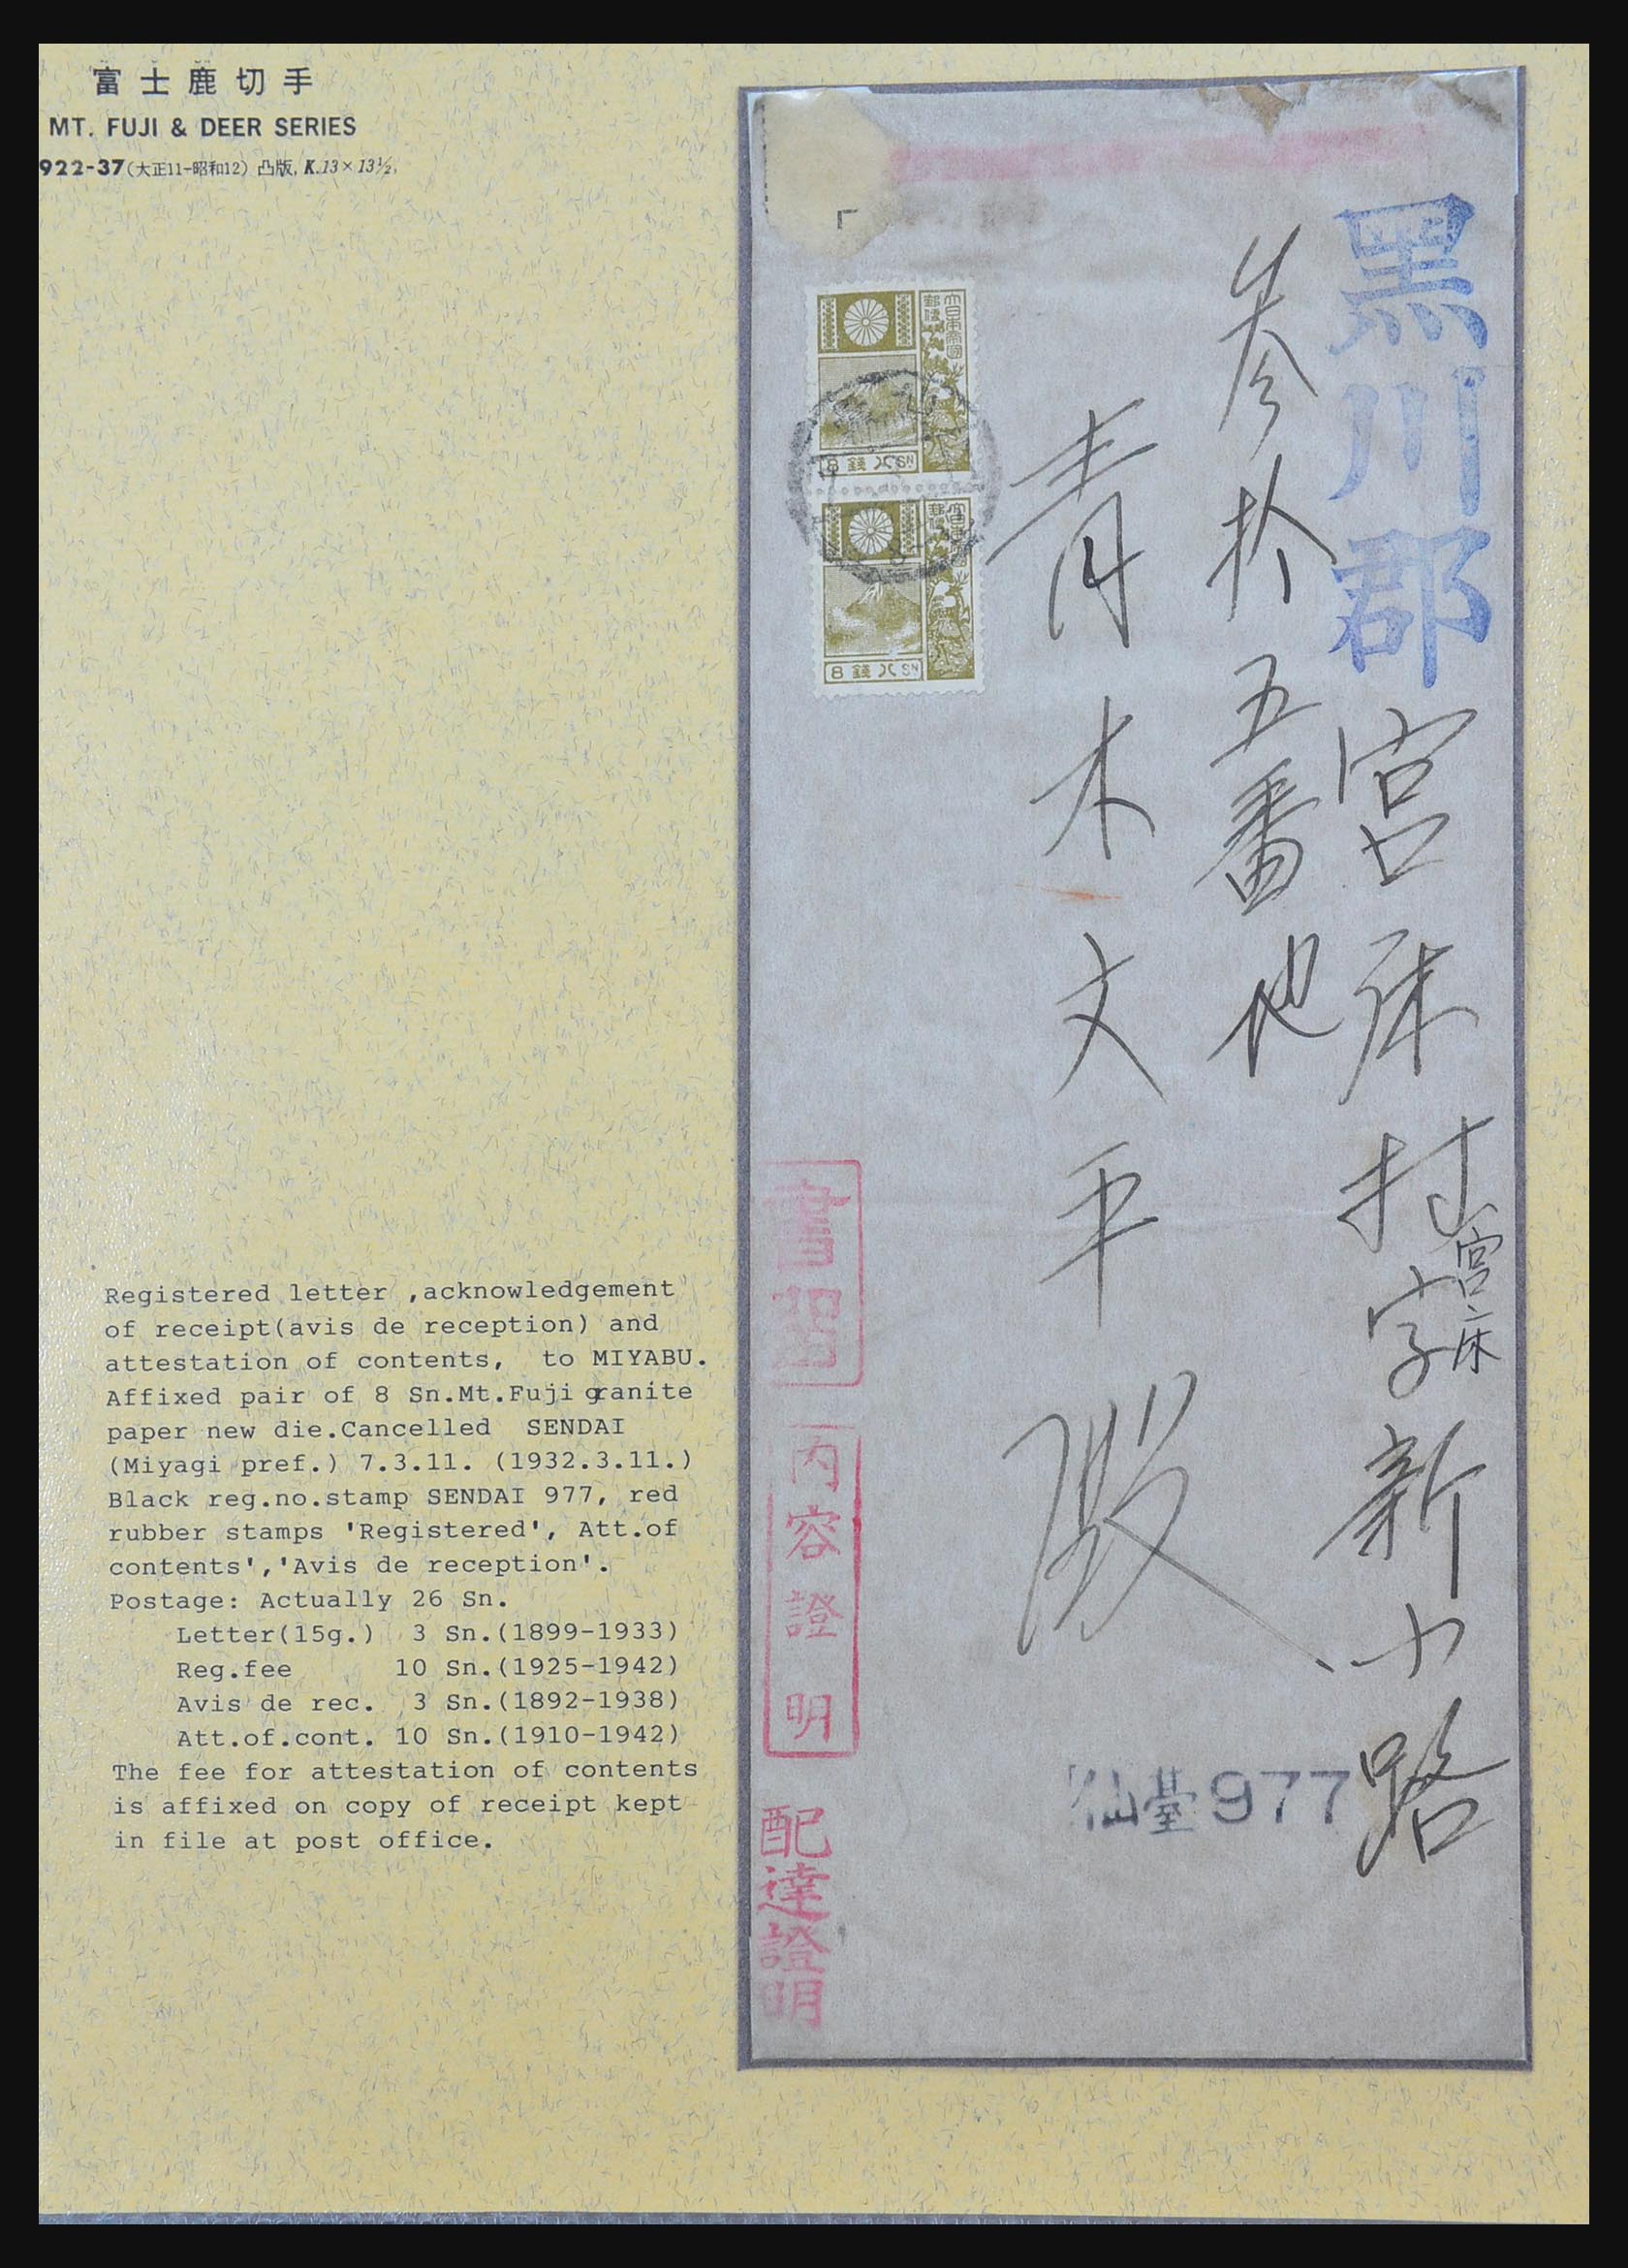 富士鹿切手
MT. FUJI & DEER SERIES
922-37(大正11-昭和12) 凸版, K.13×13½,
Registered letter ,acknowledgement
of receipt(avis de reception) and
attestation of contents, to MIYABU.
Affixed pair of 8 Sn.Mt.Fuji granite
paper new die.Cancelled SENDAI
(Miyagi pref.) 7.3.11. (1932.3.11.)
Black reg.no.stamp SENDAI 977, red
rubber stamps 'Registered', Att.of
contents','Avis de reception'.
Postage: Actually 26 Sn.
Letter(15g.) 3 Sn.(1899-1933)
Reg.fee 10 Sn.(1925-1942)
Avis de rec. 3 Sn.(1892-1938)
Att.of.cont. 10 Sn.(1910-1942)
The fee for attestation of contents
is affixed on copy of receipt kept
in file at post office.
黑川郡宮床村字新小路
宮床
参拾五番地
青木文平殿
大日本帝國
郵便
8 錢八 SN
大日本帝國
郵便
8 錢八 SN
書留
内容證明
配達證明
仙臺977